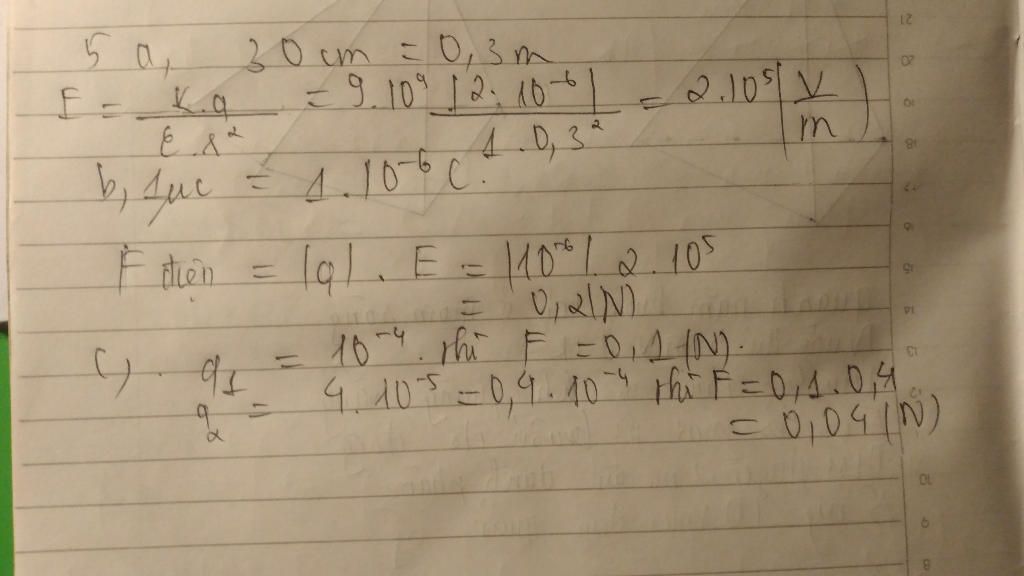 5 a, 30 cm = 0,3 m
E = K.q / ε.r² = 9.10⁹ |2.10⁻⁶| / 1.0,3² = 2.10⁵ (V/m)
b, 1μc = 1.10⁻⁶ C.
F điện = |q|. E = |10⁻⁶|. 2.10⁵
= 0,2(N)
c), q₁ = 10⁻⁴. thì F = 0,1 (N).
q₂ = 4.10⁻⁵ = 0,4.10⁻⁴ thì F = 0,1.0,4
= 0,04 (N)
21
20
19
18
17
16
15
14
13
12
10
9
8